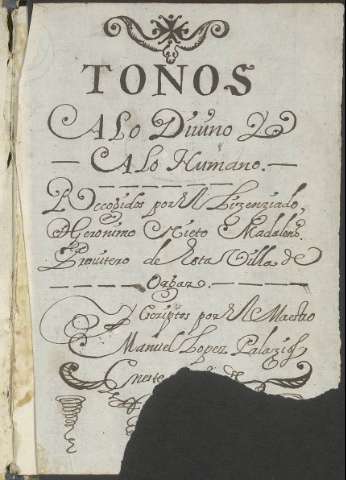 TOÑOS
A Lo Diuino Y
A Lo Humano.
Recogidos por el Lizenziado,
Geronimo Nieto Madaleno
Prouitero de Esta Villa de
Orgaz.
Y Escriptos por el Maestro
Manuel Lopez Palazios
En este